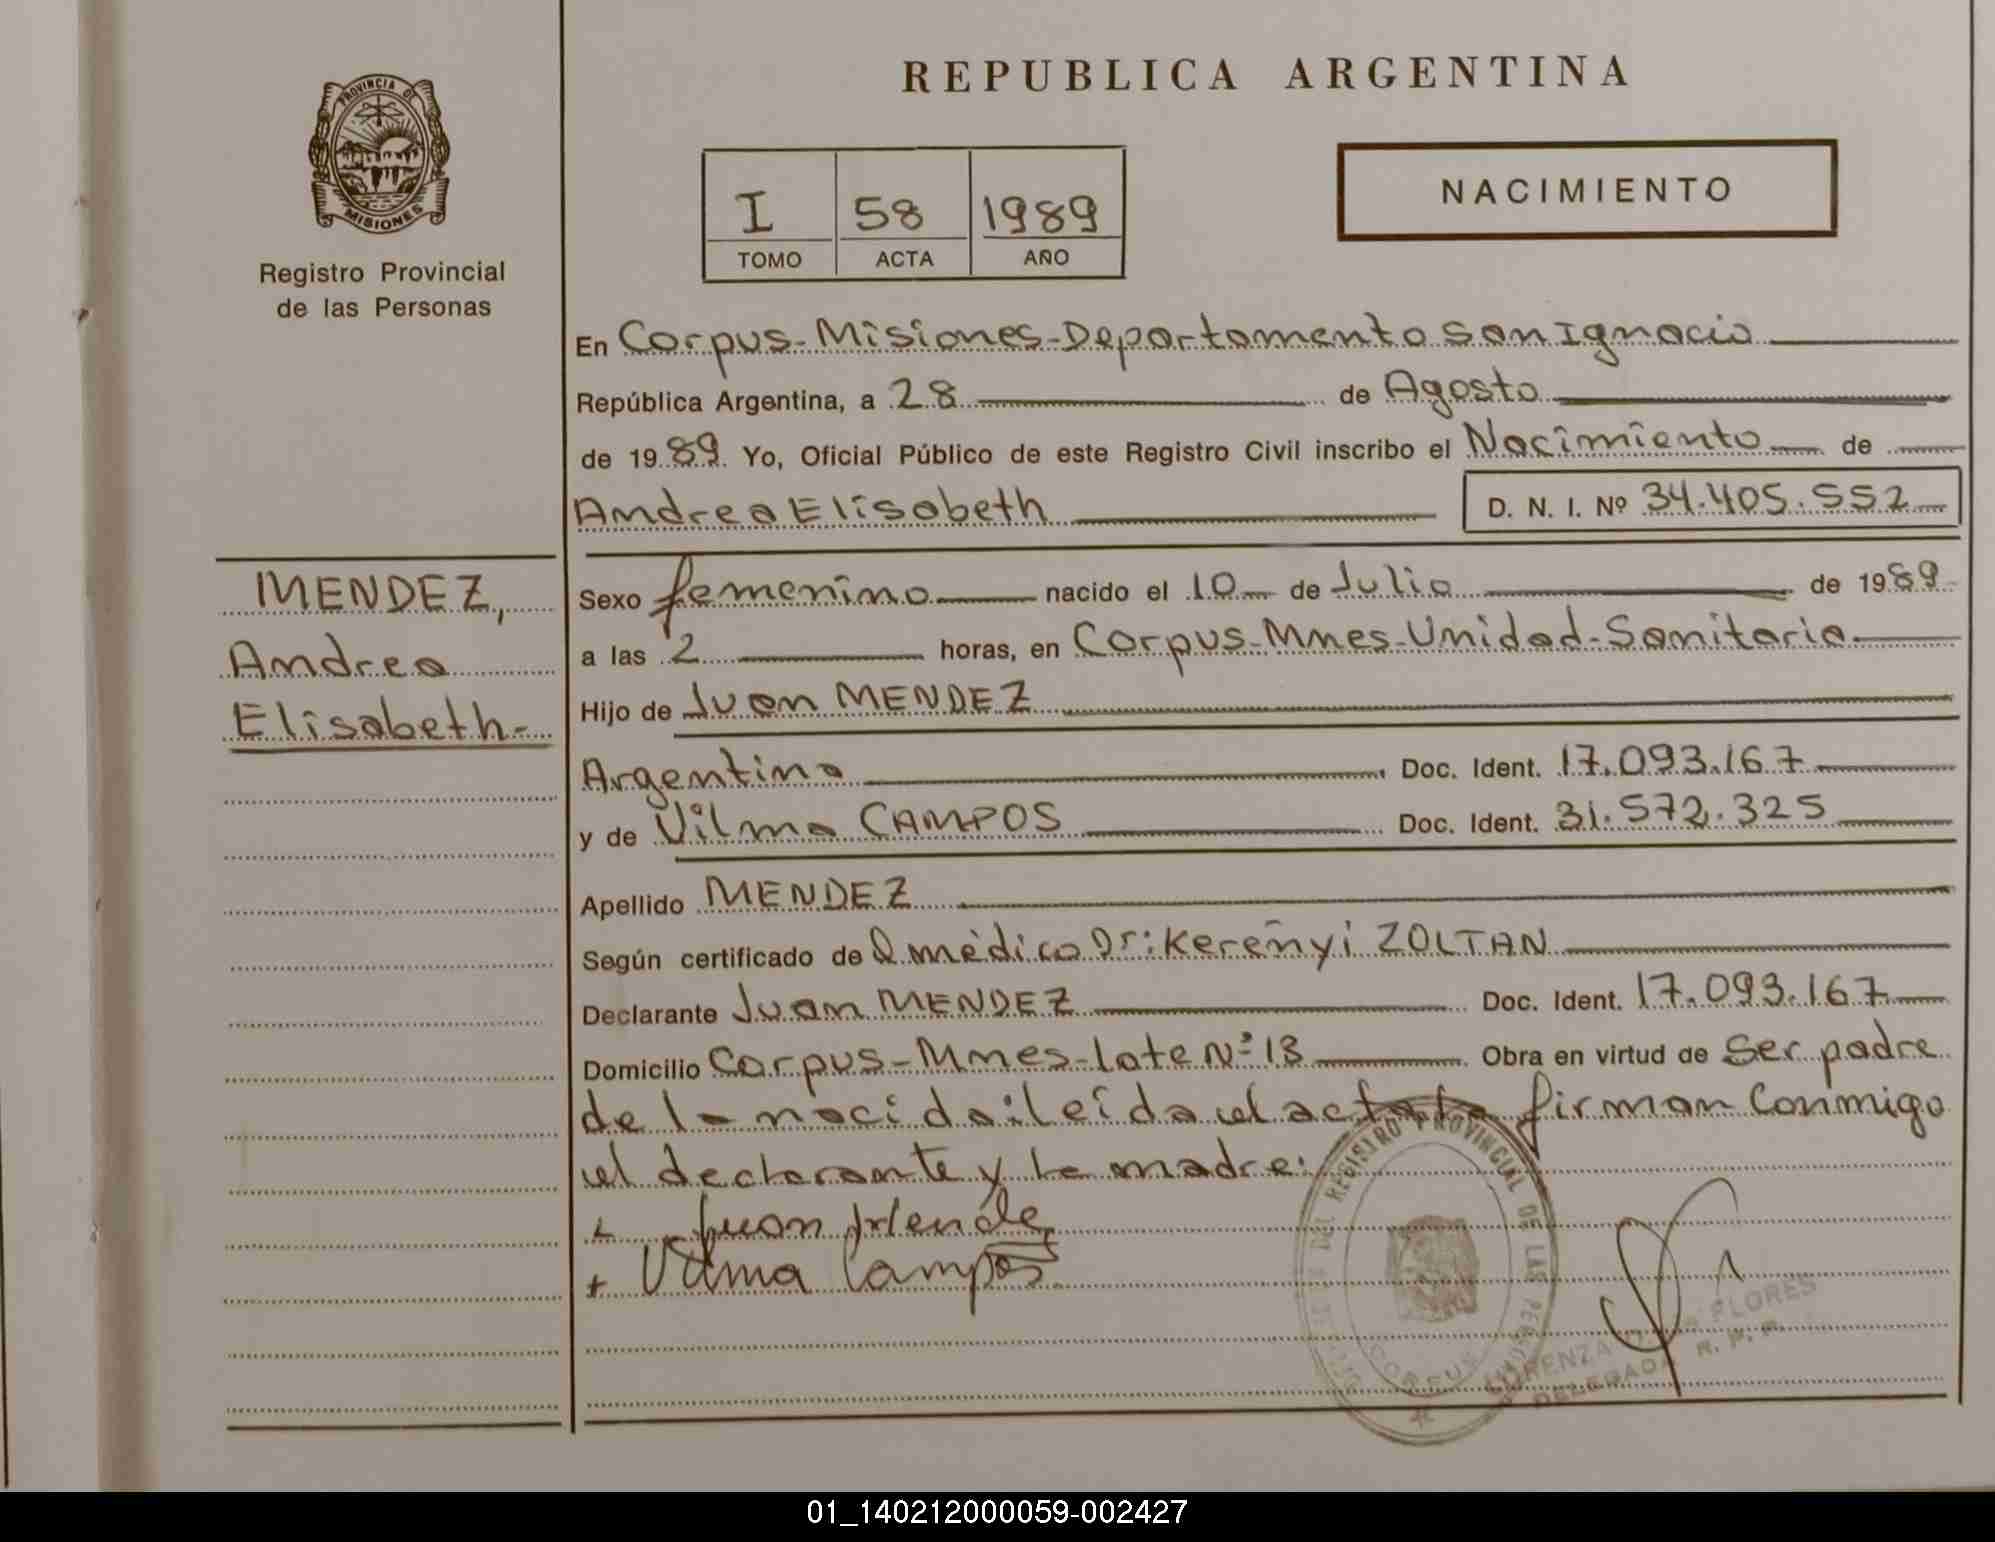 REPUBLICA ARGENTINA
PROVINCIA DE
MISIONES
Registro Provincial
de las Personas
I 58 1989
TOMO ACTA AÑO
NACIMIENTO
En Corpus-Misiones-Departamento San Ignacio
República Argentina, a 28 de Agosto
de 1989. Yo, Oficial Público de este Registro Civil inscribo el Nacimiento de
Andrea Elisabeth D. N. I. Nº 34.405.552
MENDEZ,
Andrea
Elisabeth-
Sexo femenino nacido el 10 de Julio de 1989
a las 2 horas, en Corpus-Mnes-Unidad-Sanitaria
Hijo de Juan MENDEZ
Argentino Doc. Ident. 17.093.167
y de Vilma CAMPOS Doc. Ident. 31.572.325
Apellido MENDEZ
Según certificado de médico Dr: Kereñyi ZOLTAN
Declarante Juan MENDEZ Doc. Ident. 17.093.167
Domicilio Corpus-Mnes-Lote Nº 13 Obra en virtud de Ser padre
de la nacida: leída el acta firman Conmigo
el declarante y la madre:
Juan Mendez
+ Vilma Campos
DEL REGISTRO PROVINCIAL DE LAS
CORPUS
FLORES
DELEGADA R. P. P.
01_140212000059-002427